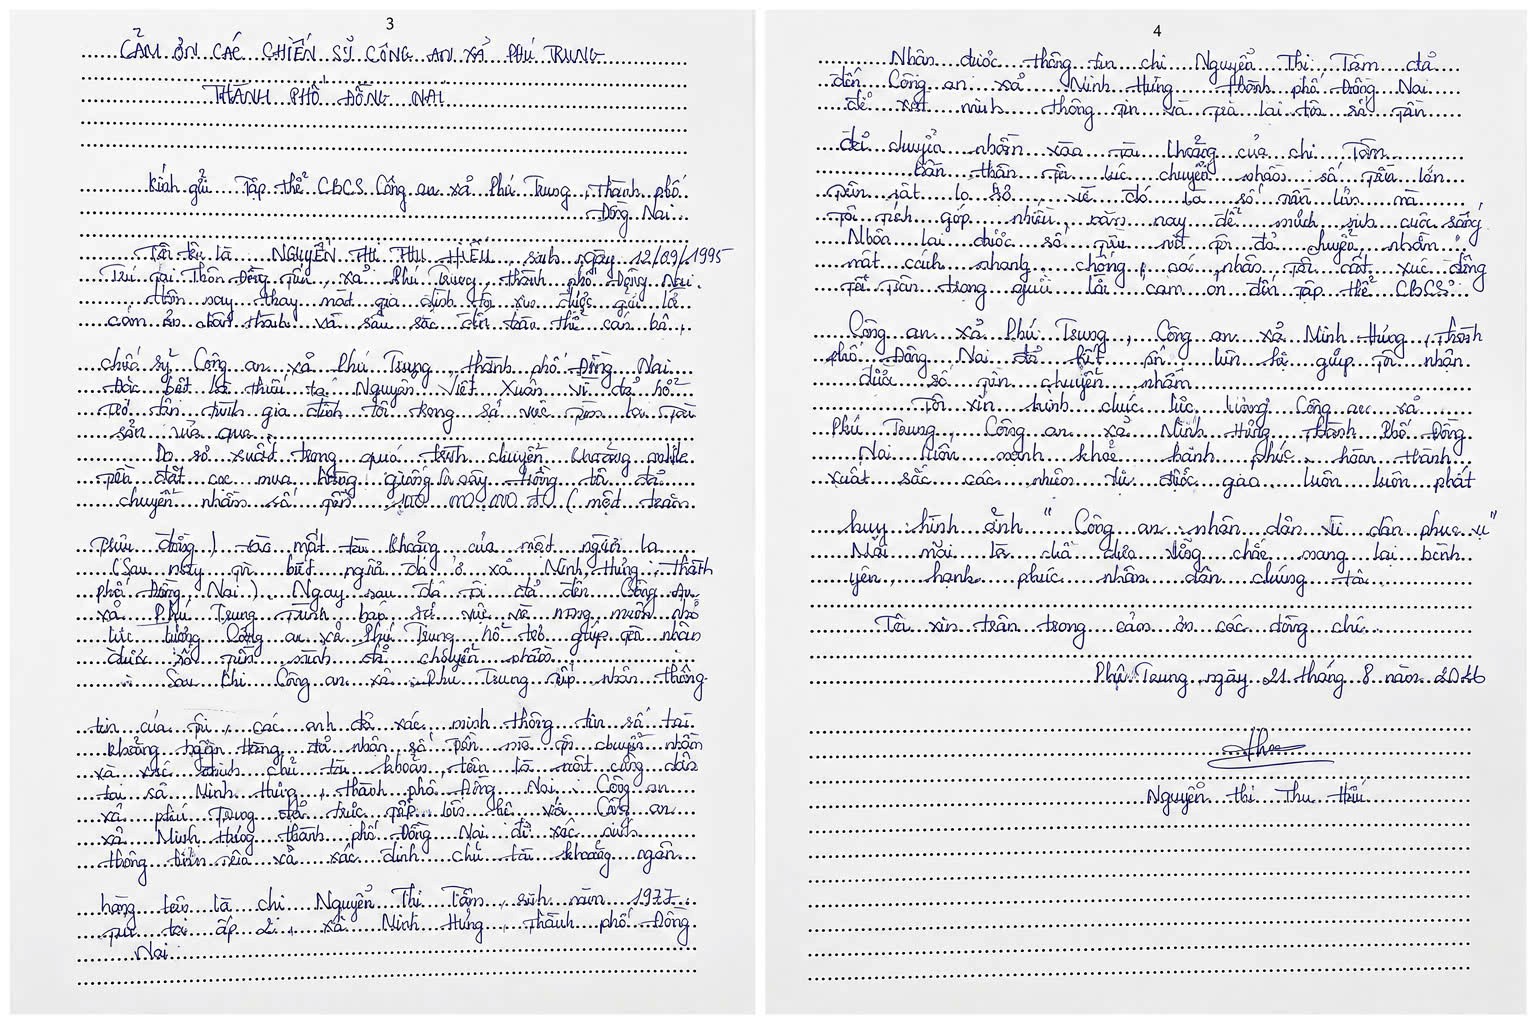 3
CẢM ƠN CÁC CHIẾN SỸ CÔNG AN XÃ PHÚ TRUNG
THÀNH PHỐ ĐỒNG NAI
Kính gửi Tập thể CBCS Công an xã Phú Trung, Thành phố
Đồng Nai
Tôi tên là NGUYỄN THỊ THU HIẾU, sinh ngày 12/09/1995
Trú tại Thôn xã Phú Trung, thành phố Đồng Nai.
Hôm nay thay mặt gia đình tôi xin được gửi lời
cảm ơn chân thành và sâu sắc đến tập thể cán bộ,
chiến sỹ Công an xã Phú Trung, thành phố Đồng Nai
Đặc biệt là thiếu tá Nguyễn Viết Xuân vì đã hỗ
trợ tận tình gia đình tôi trong sự việc tìm lại tài
sản vừa qua.
Do sơ xuất trong quá trình chuyển khoản online
tiền đặt cọc mua hàng giống cây trồng tôi đã
chuyển nhầm số tiền 100.000.000.đ ( một trăm
triệu đồng ) vào một tài khoảng của một người lạ
(Sau này tôi biết người đó ở xã Minh Hưng, thành
phố Đồng Nai). Ngay sau đó tôi đã đến Công An
xã Phú Trung trình báo sự việc và mong muốn nhờ
lực lượng Công an xã Phú Trung hỗ trợ giúp tôi nhận
được số tiền mình đã chuyển nhầm.
Sau khi Công an xã Phú Trung tiếp nhận thông
tin của tôi, các anh đã xác minh thông tin số tài
khoảng ngân hàng đã nhận số tiền mà tôi chuyển nhầm
và xác minh chủ tài khoản tên là một công dân
tại xã Minh Hưng, thành phố Đồng Nai. Công an
xã phú Trung đã trực tiếp liên hệ với Công an
xã Minh Hưng thành phố Đồng Nai để xác minh
thông tin trên và xác định chủ tài khoảng ngân
hàng tên là chị Nguyễn Thị Tâm, sinh năm 1977
trú tại ấp 2, xã Minh Hưng, Thành phố Đồng
Nai.
4
Nhận được thông tin chị Nguyễn Thị Tâm đã
đến Công an xã Minh Hưng thành phố Đồng Nai
để xác minh thông tin và trả lại tôi số tiền
đã chuyển nhầm vào tài khoảng của chị Tâm
Bản thân tôi lúc chuyển nhầm số tiền lớn
trên rất lo sợ, vì đó là số tiền lớn mà
Tôi tích góp nhiều năm nay để mưu sinh cuộc sống
Nhận lại được số tiền mà tôi đã chuyển nhầm
một cách nhanh chóng, cá nhân tôi rất xúc động
Tôi trân trọng gửi lời cảm ơn đến tập thể CBCS
Công an xã Phú Trung, Công an xã Minh Hưng, thành
phố Đồng Nai đã liên hệ giúp tôi nhận
được số tiền chuyển nhầm
Tôi xin kính chúc lực lượng Công an xã
Phú Trung, Công an xã Minh Hưng, thành Phố Đồng
Nai luôn mạnh khoẻ, hạnh phúc, hoàn thành
xuất sắc các nhiệm vụ được giao, luôn luôn phát
huy hình ảnh " Công an nhân dân vì dân phục vụ"
Mãi mãi là chỗ dựa vững chắc mang lại bình
yên, hạnh phúc nhân dân chúng tôi.
Tôi xin trân trọng cảm ơn các đồng chí.
Phú Trung, ngày 21 tháng 8 năm 2026
Nguyễn Thị Thu Hiếu